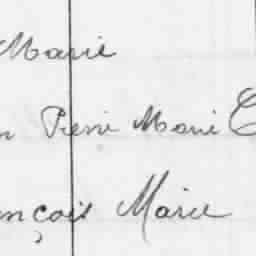 Marie
n Pierre Marie C
nçois Marie